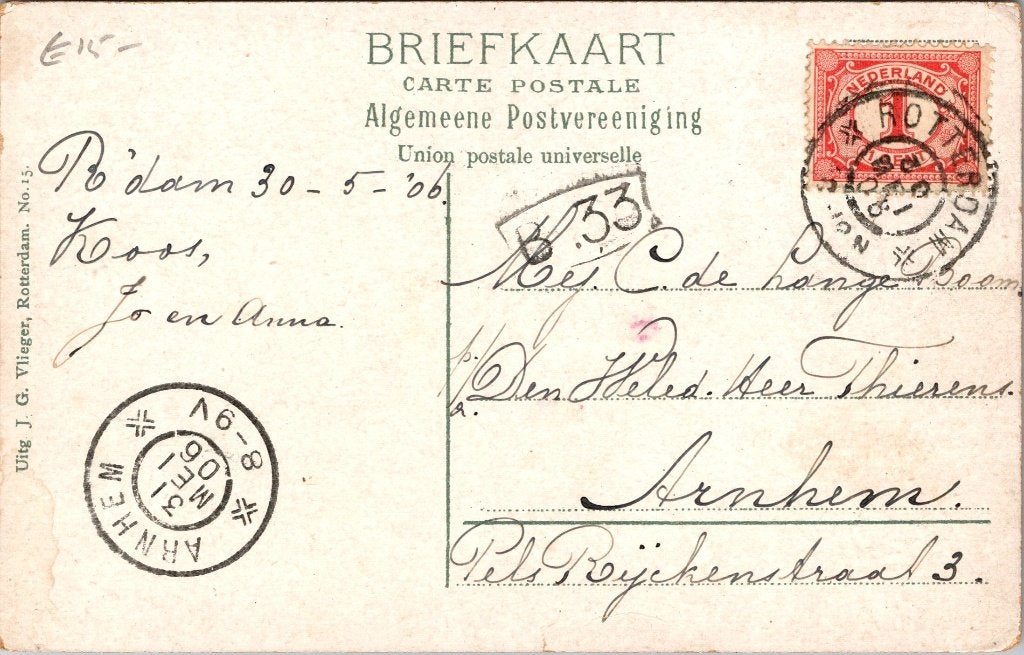 E 15-
BRIEFKAART
CARTE POSTALE
Algemeene Postvereeniging
Union postale universelle
NEDERLAND
1
CENT
ROTTERDAM
R'dam 30-5-'06
Koos,
Jo en Anna.
B 33
Mej. C. de Lange Boom
p/a. Den Weled. Heer Thierens.
Arnhem.
Pels Rijckenstraat 3.
ARNHEM
8-9V
31
MEI
06
Uitg J. G. Vlieger, Rotterdam. No. 15.